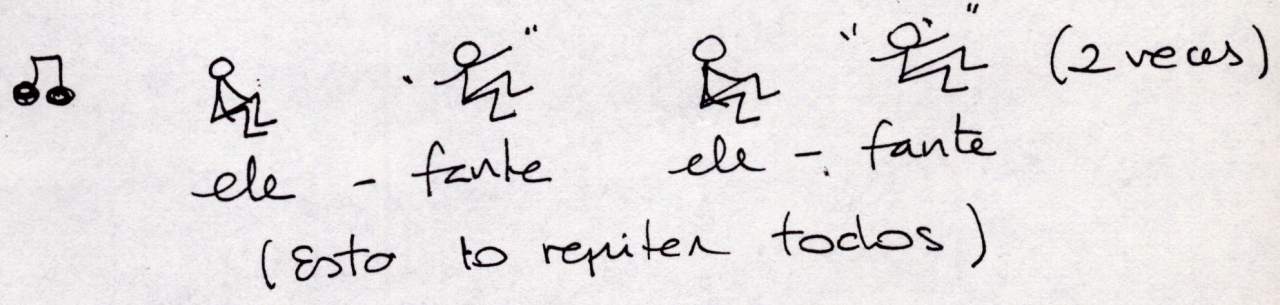 (2 veces)
ele - fante ele - fante
(Esto lo repiten todos)